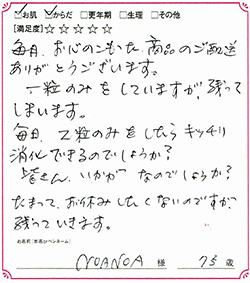 ☑お肌 ☑からだ □更年期 □生理 □その他
[満足度]☆☆☆☆☆
毎月、お心のこもった商品のご配送
ありがとうございます。
一粒のみをしていますが、残って
しまいます。
毎日、2粒のみをしたらキッチリ
消化できるのでしょうか?
皆さん、いかがなのでしょうか?
たまって、お休みしたくないのですが、
残っていきます。
お名前[本名orペンネーム]
NOANOA 様 75歳